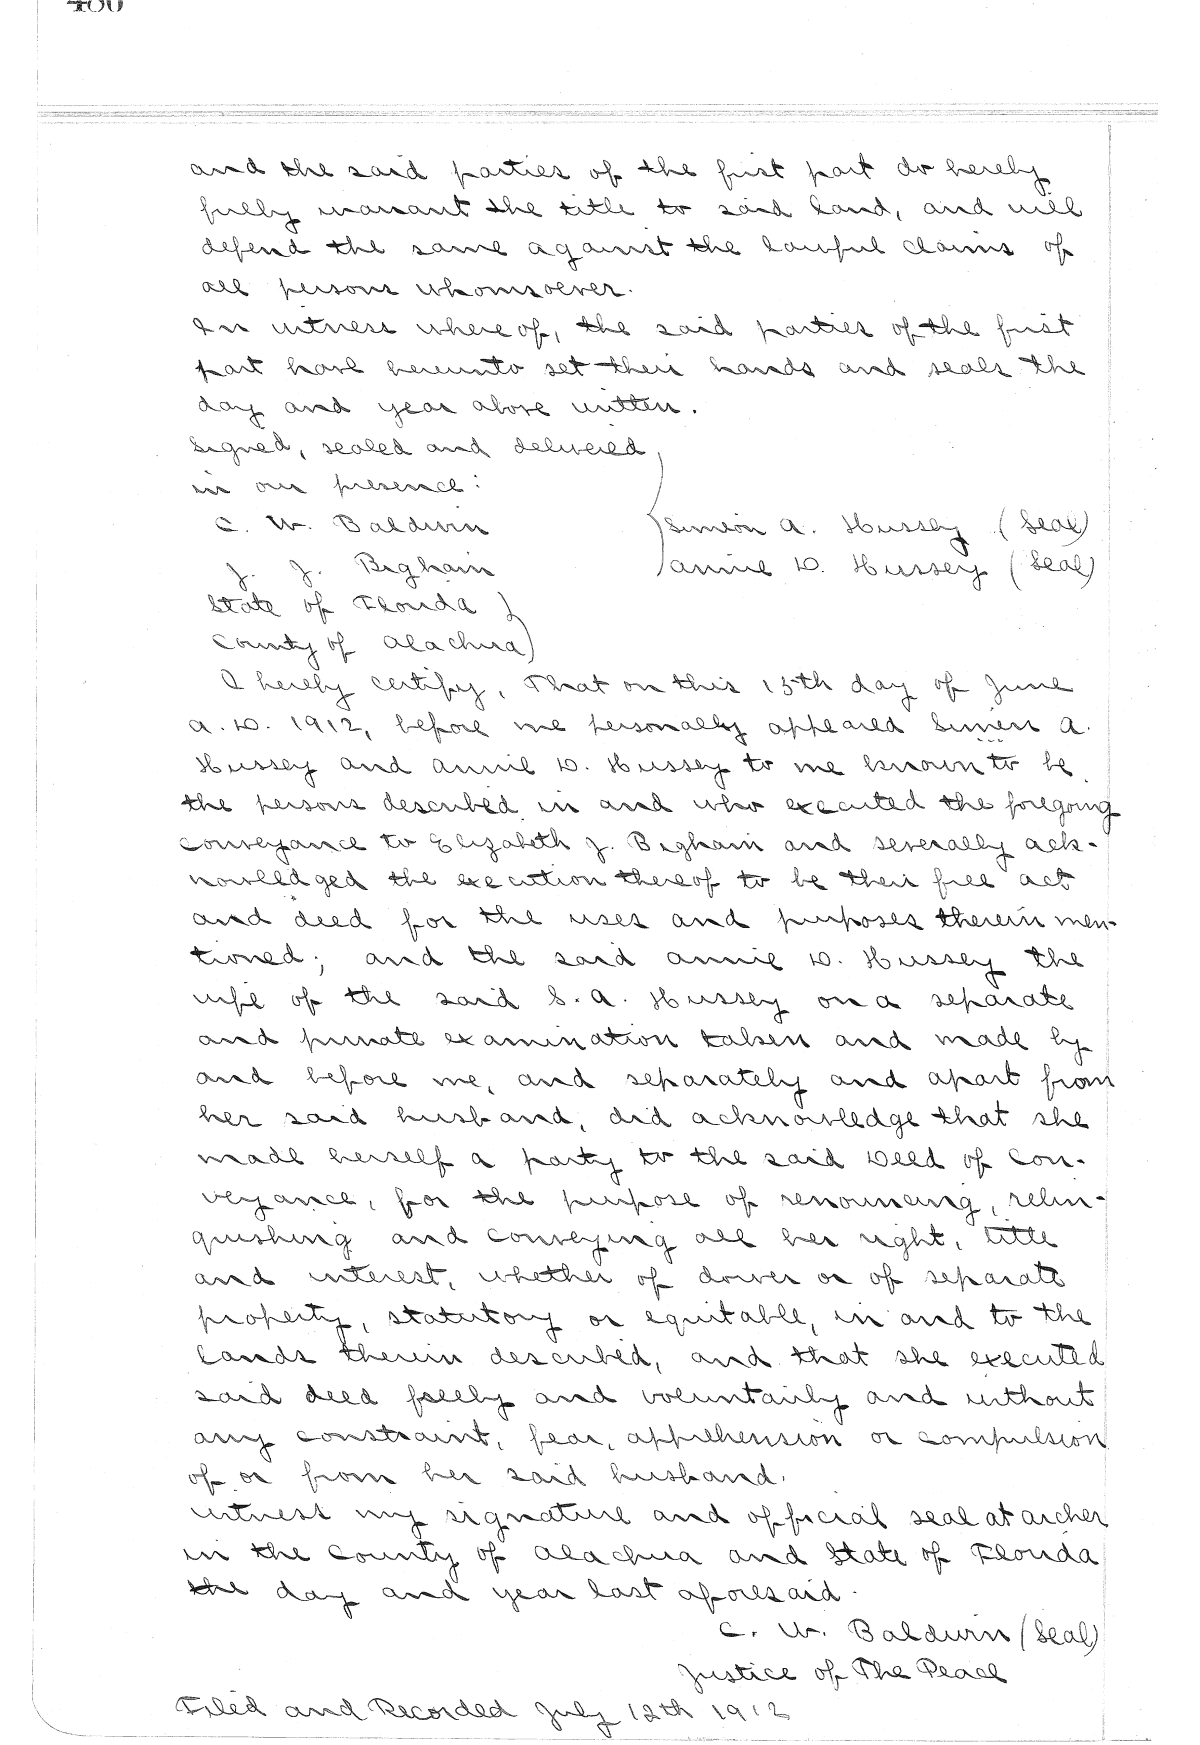 480
and the said parties of the first part do hereby
fully warrant the title to said land, and will
defend the same against the lawful claims of
all persons whomsoever.
In witness whereof, the said parties of the first
part have hereunto set their hands and seals the
day and year above written.
Signed, sealed and delivered
in our presence:
C. W. Baldwin Simeon A. Hussey (Seal)
J. J. Bigham Annie D. Hussey (Seal)
State of Florida
County of Alachua
I hereby certify, That on this 15th day of June
A.D. 1912, before me personally appeared Simeon A.
Hussey and Annie D. Hussey to me known to be
the persons described in and who executed the foregoing
conveyance to Elizabeth J. Bigham and severally ack-
nowledged the execution thereof to be their free act
and deed for the uses and purposes therein men-
tioned; and the said Annie D. Hussey the
wife of the said S. A. Hussey on a separate
and private examination taken and made by
and before me, and separately and apart from
her said husband, did acknowledge that she
made herself a party to the said Deed of Con-
veyance, for the purpose of renouncing, relin-
quishing and conveying all her right, title
and interest, whether of dower or of separate
property, statutory or equitable, in and to the
lands therein described, and that she executed
said deed freely and voluntarily and without
any constraint, fear, apprehension or compulsion
of or from her said husband.
Witness my signature and official seal at Archer
in the County of Alachua and State of Florida
the day and year last aforesaid.
C. W. Baldwin (Seal)
Justice of The Peace
Filed and Recorded July 12th 1912